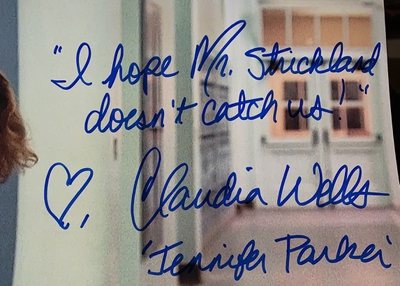 "I hope Mr. Strickland
doesn't catch us!"
♡, Claudia Wells
'Jennifer Parker'